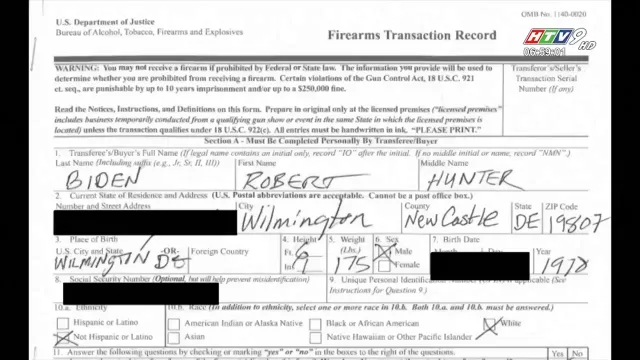 OMB No. 1140-0020
U.S. Department of Justice
Bureau of Alcohol, Tobacco, Firearms and Explosives
Firearms Transaction Record
HTV9 HD
06:59:01
WARNING: You may not receive a firearm if prohibited by Federal or State law. The information you provide will be used to
determine whether you are prohibited from receiving a firearm. Certain violations of the Gun Control Act, 18 U.S.C. 921
et. seq., are punishable by up to 10 years imprisonment and/or up to a $250,000 fine.
Transferor's/Seller's
Transaction Serial
Number (If any)
Read the Notices, Instructions, and Definitions on this form. Prepare in original only at the licensed premises ("licensed premises"
includes business temporarily conducted from a qualifying gun show or event in the same State in which the licensed premises is
located) unless the transaction qualifies under 18 U.S.C. 922(c). All entries must be handwritten in ink. "PLEASE PRINT."
Section A - Must Be Completed Personally By Transferee/Buyer
1. Transferee's/Buyer's Full Name (If legal name contains an initial only, record "IO" after the initial. If no middle initial or name, record "NMN".)
Last Name (Including suffix (e.g., Jr, Sr, II, III)) First Name Middle Name
BIDEN ROBERT HUNTER
2. Current State of Residence and Address (U.S. Postal abbreviations are acceptable. Cannot be a post office box.)
Number and Street Address City County State ZIP Code
Wilmington New Castle DE 19807
3. Place of Birth 4. Height 5. Weight 6. Sex 7. Birth Date
U.S. City and State -OR- Foreign Country Ft. (Lbs.) Male Year
WILMINGTON DE In. 175 Female 1970
8. Social Security Number (Optional, but will help prevent misidentification) 9. Unique Personal Identification Number
Instructions for Question 9.)
10.a. Ethnicity 10.b. Race (In addition to ethnicity, select one or more race in 10.b. Both 10.a. and 10.b. must be answered.)
Hispanic or Latino American Indian or Alaska Native Black or African American White
Not Hispanic or Latino Asian Native Hawaiian or Other Pacific Islander
11. Answer the following questions by checking or marking "yes" or "no" in the boxes to the right of the questions. Yes No